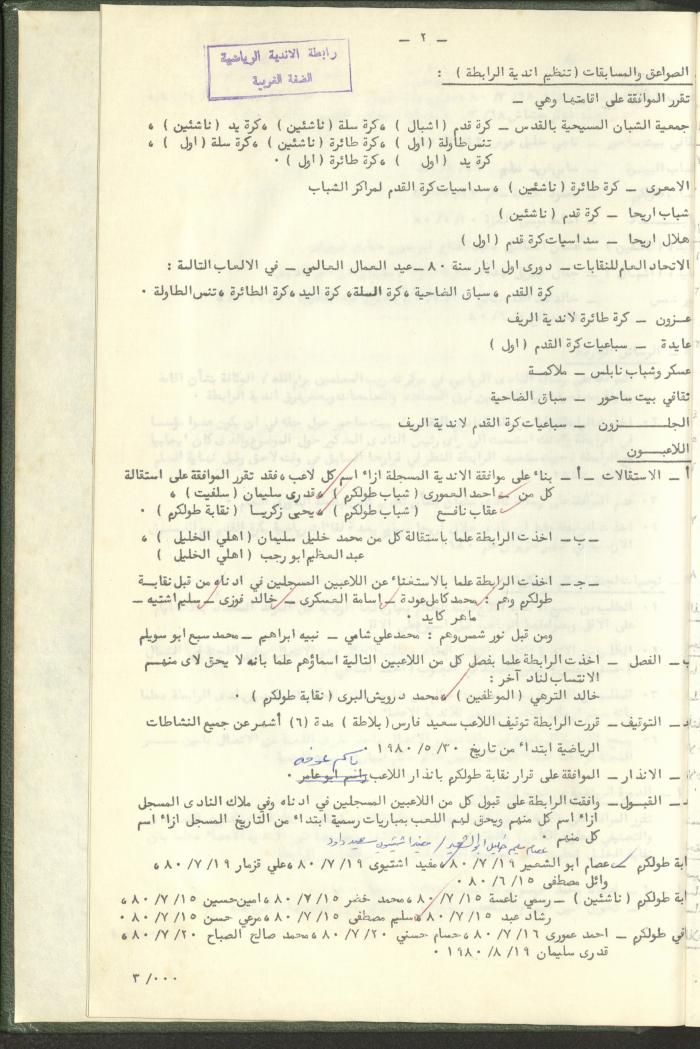 — ٢ —
رابطة الاندية الرياضية
الضفة الغربية
الصواعق والمسابقات ( تنظيم اندية الرابطة ) :
تقرر الموافقة على اقامتها وهي —
جمعية الشبان المسيحية بالقدس — كرة قدم ( اشبال ) ، كرة سلة ( ناشئين ) ، كرة يد ( ناشئين ) ،
تنس طاولة ( اول ) ، كرة طائرة ( ناشئين ) ، كرة سلة ( اول ) ،
كرة يد ( اول ) ، كرة طائرة ( اول ) ٠
الامعرى — كرة طائرة ( ناشئين ) ، سداسيات كرة القدم لمراكز الشباب
شباب اريحا — كرة قدم ( ناشئين )
هلال اريحا — سداسيات كرة قدم ( اول )
الاتحاد العام للنقابات — دورى اول ايار سنة ٨٠ — عيد العمال العالمي — في الالعاب التالية :
كرة القدم ، سباق الضاحية ، كرة السلة ، كرة اليد ، كرة الطائرة ، تنس الطاولة ٠
عزون — كرة طائرة لاندية الريف
عايدة — سباعيات كرة القدم ( اول )
عسكر وشباب نابلس — ملاكمة
ثقافي بيت ساحور — سباق الضاحية
الجلزون — سباعيات كرة القدم لاندية الريف
اللاعبون
أ — الاستقالات — أ — بناء على موافقة الاندية المسجلة ازاء اسم كل لاعب ، فقد تقرر الموافقة على استقالة
كل من — احمد العمورى ( شباب طولكرم ) ، قدرى سليمان ( سلفيت ) ،
عقاب نافع ( شباب طولكرم ) ، يحيى زكريا ( نقابة طولكرم ) ٠
— ب — اخذت الرابطة علما باستقالة كل من محمد خليل سليمان ( اهلي الخليل ) ،
عبد العظيم ابو رجب ( اهلي الخليل )
— ج — اخذت الرابطة علما بالاستغناء عن اللاعبين المسجلين في ادناه من قبل نقابة
طولكرم وهم : محمد كامل عودة — اسامة العسكرى — خالد فوزى — سليم اشتيه —
ماهر كايد ٠
ومن قبل نور شمس وهم : محمد علي شامي — نبيه ابراهيم — محمد سبع ابو سويلم
ب — الفصل — اخذت الرابطة علما بفصل كل من اللاعبين التالية اسماؤهم علما بانه لا يحق لاى منهم
الانتساب لناد آخر :
خالد الترهي ( الموظفين ) ، محمد درويش البرى ( نقابة طولكرم ) ٠
— التوقيف — قررت الرابطة توقيف اللاعب سعيد فارس ( بلاطة ) مدة (٦) أشهر عن جميع النشاطات
الرياضية ابتداء من تاريخ ٣٠ /٥ /١٩٨٠ ٠
باسم عوفه
— الانذار — الموافقة على قرار نقابة طولكرم بانذار اللاعب راسم ابو عامر ٠
— القبول — وافقت الرابطة على قبول كل من اللاعبين المسجلين في ادناه وفي ملاك النادى المسجل
ازاء اسم كل منهم ويحق لهم اللعب بمباريات رسمية ابتداء من التاريخ المسجل ازاء اسم
كل منهم ٠
ابة طولكرم — عصام ابو الشعير ١٩ /٧ /٨٠ ، مفيد اشتيوى ١٩ /٧ /٨٠ ، علي قزمار ١٩ /٧ /٨٠ ،
وائل مصطفى ١٥ /٦ /٨٠ ٠
ابة طولكرم ( ناشئين ) — رسمي ناعسة ١٥ /٧ /٨٠ ، محمد خضر ١٥ /٧ /٨٠ ، امين حسين ١٥ /٧ /٨٠ ،
رشاد عبد ١٥ /٧ /٨٠ ، سليم مصطفى ١٥ /٧ /٨٠ ، مرعي حسن ١٥ /٧ /٨٠ ٠
افي طولكرم — احمد عمورى ١٦ /٧ /٨٠ ، حسام حسني ٢٠ /٧ /٨٠ ، محمد صالح الصباح ٢٠ /٧ /٨٠ ،
قدرى سليمان ١٩ /٨ /١٩٨٠ ٠
٣ /٠٠٠